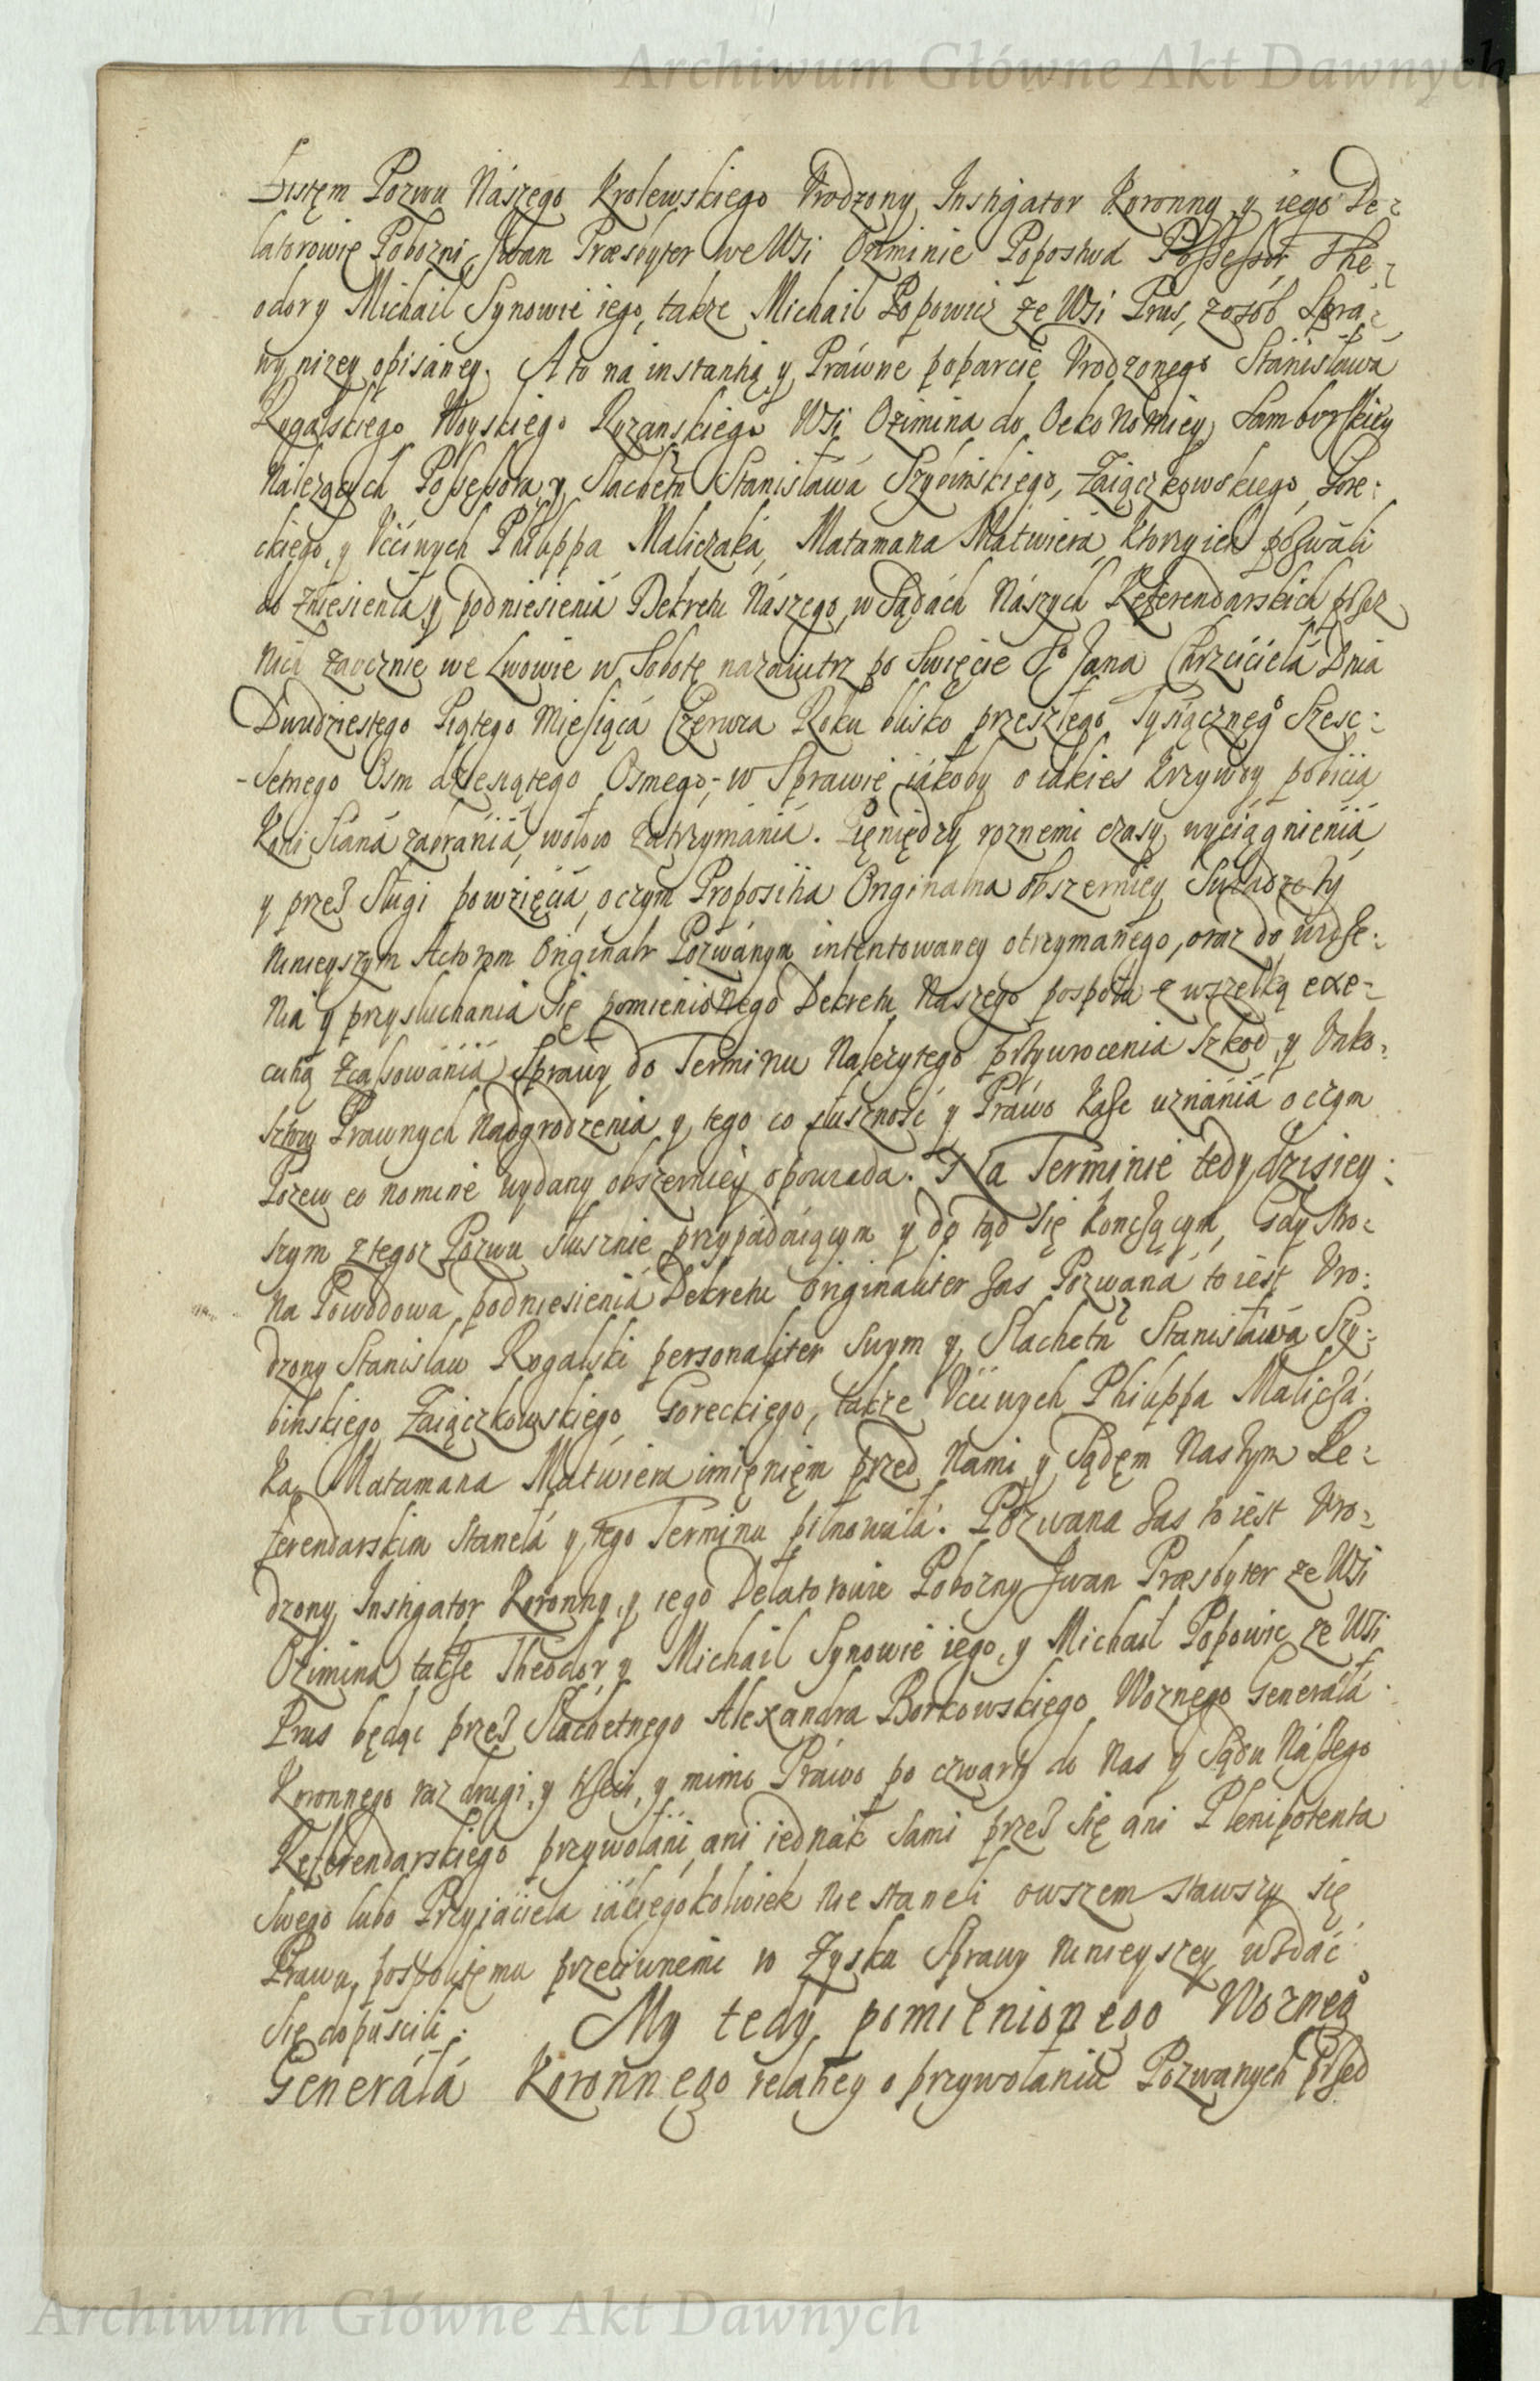 Archiwum Główne Akt Dawnych
Listem Pozwu Nászego Krolewskiego Vrodzony Instigator Koronny y iego De-
latorowie Pobozni Iwan Præsbyter we Wsi Oziminie Popostwa Possessor The-
odor y Michail Synowie iego, także Michail Popowicz ze Wsi Prus, z osób Sprá-
wy nizey opisáney. A to ná instantią y Práwne poparcie Vrodzonego Stánisłáwá
Rogalskiego Woyskiego Wsi Ozimina do Oekonomiey Samborskiey
Nálezących Possessora y Slachetn Stanisławá Szybinskiego, Záiączkowskiego, Gore-
ckiego, y Vććiwych Philippa Maliczaká, Matamana Mátwieiá, ktorzy ich pozwáli
do zniesieniá y podniesieniá Dekretu Nászego, w Sądách Nászych Referendarskich przez
Nich zaocznie we Lwowie w Sobotę nazaiutrz po Swięcie So Jana Chrzcićielá Dnia
Dwudziestego Piątego Miesiącá Czerwca Roku blisko przeszłego Tysiącznego Szesc-
-setnego Osm dziesiątego Osmego, w Sprawie iákoby o iákies krzywdy pobicia
Koni Siáná zabrániá, wołow zatrzymániá. Pieniędzy roznemi czasy wyciągnieniá
y przez Sługi powzięciá, o czym Propositia Originalna obszerniey Swiadczy
Ninieyszym Actorom Originalr Pozwánym intentowaney otrzymanego, oraz do widze-
nia y przysłuchania się pomienionego Dekretu Naszego pospołu z wszelką exe-
cutią Zcassowániá Sprawy do Terminu Nalezytego przywrocenia Szkod, y Vnko-
sztow Prawnych Nadgrodzenia y tego co słuszność y Práwo każe uznániá o czym
Pozew eo nomine wydany obszerniey opowiada. Na Terminie tedy dzisiey-
szym z tegoz Pozwu słusznie przypadáiącym y do tąd się kończącym, Gdy Stro-
na Powodowa podniesieniá Dekretu originaliter zas Pozwana to iest Vro-
dzony Stanisław Rogalski personaliter Swym y Slachetn Stanisłáwá Szy-
binskiego Záiączkowskiego Goreckiego, także Vććiwych Philippa Malicza-
ka, Matamana Mátwieia imieniem przed Nami y Sądem Naszym Re-
ferendarskim stanełá y tego Terminu pilnowáłá. Pozwana zas to iest Vro-
dzony Instigator Koronny, y iego Delatorowie Pobozny Iwan Præsbyter ze Wsi
Ozimina także Theodor y Michail Synowie iego, y Michaił Popowic ze Wsi
Prus będąc przez Slachetnego Alexandra Borkowskiego Woznego Generałá
Koronnego raz drugi, y trzeci, y mimo Práwo po czwarty do Nas y Sądu Nászego
Referendarskiego przywołáni, ani iednák sami przez się ani Plenipotenta
Swego lubo Przyiaciela iákiegokolwiek nie staneli owszem stawszy się
Prawu pospolitemu przeciwnemi w Zysku Sprawy ninieyszey wzdáć
Się dopuscili. My tedy pomienionego Woznego
Generáłá Koronnego relatiey o przywołaniu Pozwanych przed
Archiwum Główne Akt Dawnych